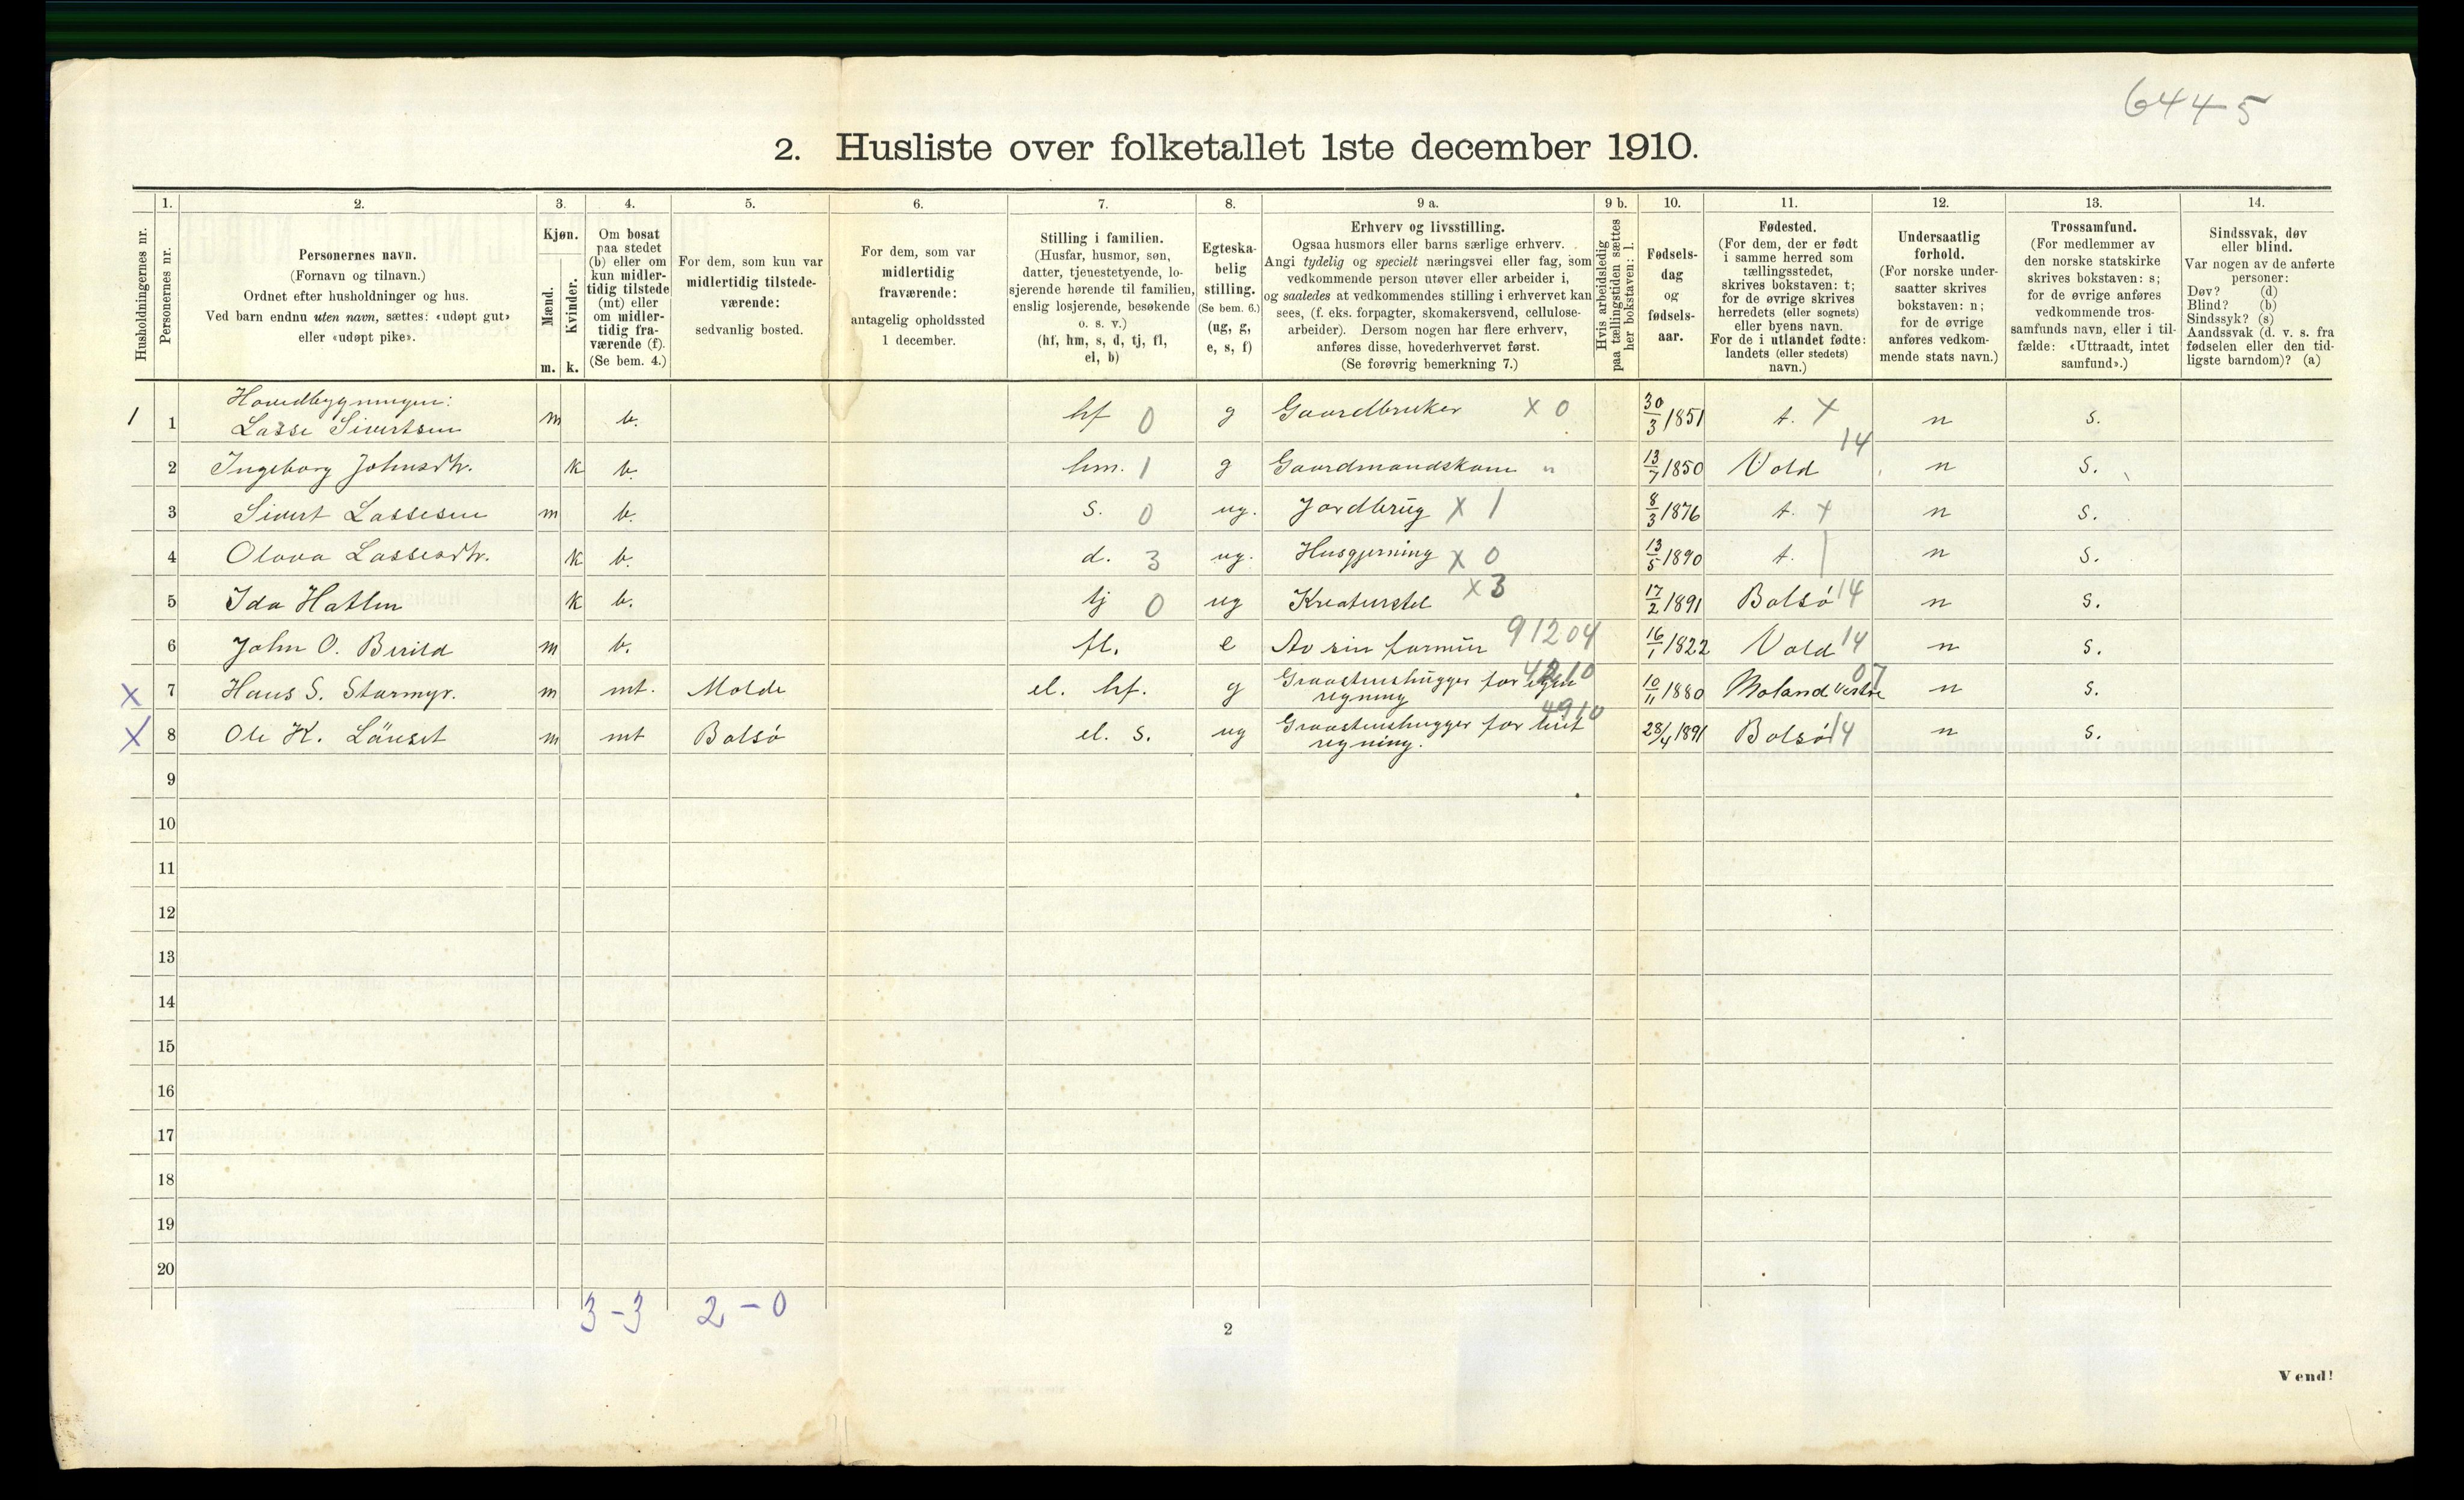 6445
2. Husliste over folketallet 1ste december 1910.
Husholdningernes nr.
1.
Personernes nr.
2.
Personernes navn.
(Fornavn og tilnavn.)
Ordnet efter husholdninger og hus.
Ved barn endnu uten navn, sættes: «udøpt gut»
eller «udøpt pike».
3.
Kjøn.
Mænd.
Kvinder.
m. k.
4.
Om bosat
paa stedet
(b) eller om
kun midler-
tidig tilstede
(mt) eller
om midler-
tidig fra-
værende (f).
(Se bem. 4.)
5.
For dem, som kun var
midlertidig tilstede-
værende:
sedvanlig bosted.
6.
For dem, som var
midlertidig
fraværende:
antagelig opholdssted
1 december.
7.
Stilling i familien.
(Husfar, husmor, søn,
datter, tjenestetyende, lo-
sjerende hørende til familien,
enslig losjerende, besøkende
o. s. v.)
(hf, hm, s, d, tj, fl,
el, b)
8.
Egteska-
belig
stilling.
(Se bem. 6.)
(ug, g,
e, s, f)
9 a.
Erhverv og livsstilling.
Ogsaa husmors eller barns særlige erhverv.
Angi tydelig og specielt næringsvei eller fag, som
vedkommende person utøver eller arbeider i,
og saaledes at vedkommendes stilling i erhvervet kan
sees, (f. eks. forpagter, skomakersvend, cellulose-
arbeider). Dersom nogen har flere erhverv,
anføres disse, hovederhvervet først.
(Se forøvrig bemerkning 7.)
9 b.
Hvis arbeidsledig
paa tællingstiden sættes
her bokstaven: l.
10.
Fødsels-
dag
og
fødsels-
aar.
11.
Fødested.
(For dem, der er født
i samme herred som
tællingsstedet,
skrives bokstaven: t;
for de øvrige skrives
herredets (eller sognets)
eller byens navn.
For de i utlandet fødte:
landets (eller stedets)
navn.)
12.
Undersaatlig
forhold.
(For norske under-
saatter skrives
bokstaven: n;
for de øvrige
anføres vedkom-
mende stats navn.)
13.
Trossamfund.
(For medlemmer av
den norske statskirke
skrives bokstaven: s;
for de øvrige anføres
vedkommende tros-
samfunds navn, eller i til-
fælde: «Uttraadt, intet
samfund».)
14.
Sindssvak, døv
eller blind.
Var nogen av de anførte
personer:
Døv? (d)
Blind? (b)
Sindssyk? (s)
Aandssvak (d. v. s. fra
fødselen eller den tid-
ligste barndom)? (a)
Hovedbygningen:
1 1 Lasse Sivertsen m b. hf 0 g Gaardbruker x 0 30/3 1851 t. x n s.
2 Ingeborg Johnsdtr. k b. hm. 1 g Gaardmandskone " 13/7 1850 Vold 14 n s.
3 Sivert Lassesen m b. s. 0 ug. Jordbrug x 1 8/3 1876 t. x n s.
4 Olava Lassesdtr. k b. d. 3 ug. Husgjerning x 0 13/5 1890 t. n s.
5 Ida Hatlen k b. tj 0 ug Kreaturstel x 3 17/2 1891 Bolsø 14 n s.
6 John O. Berild m b. fl. e Av sin formue 91204 16/1 1822 Vold 14 n s.
x 7 Hans S. Stormyr. m mt. Molde el. hf. g Graastenshugger for egen
regning 10/11 1880 Moland Vestre 07 n s.
x 8 Ole K. Lånset m mt Bolsø el. s. ug Graastenshugger for leiet 4910
regning. 28/4 1891 Bolsø 14 n s.
9
10
11
12
13
14
15
16
17
18
19
20
3-3 2-0
2
Vend!